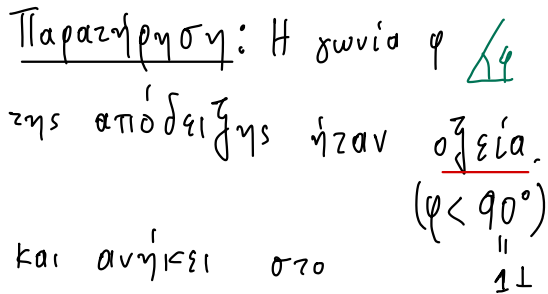 Παρατήρηση: Η γωνία φ φ
της απόδειξης ήταν οξεία.
(φ < 90°)
=
1⊥
και ανήκει στο